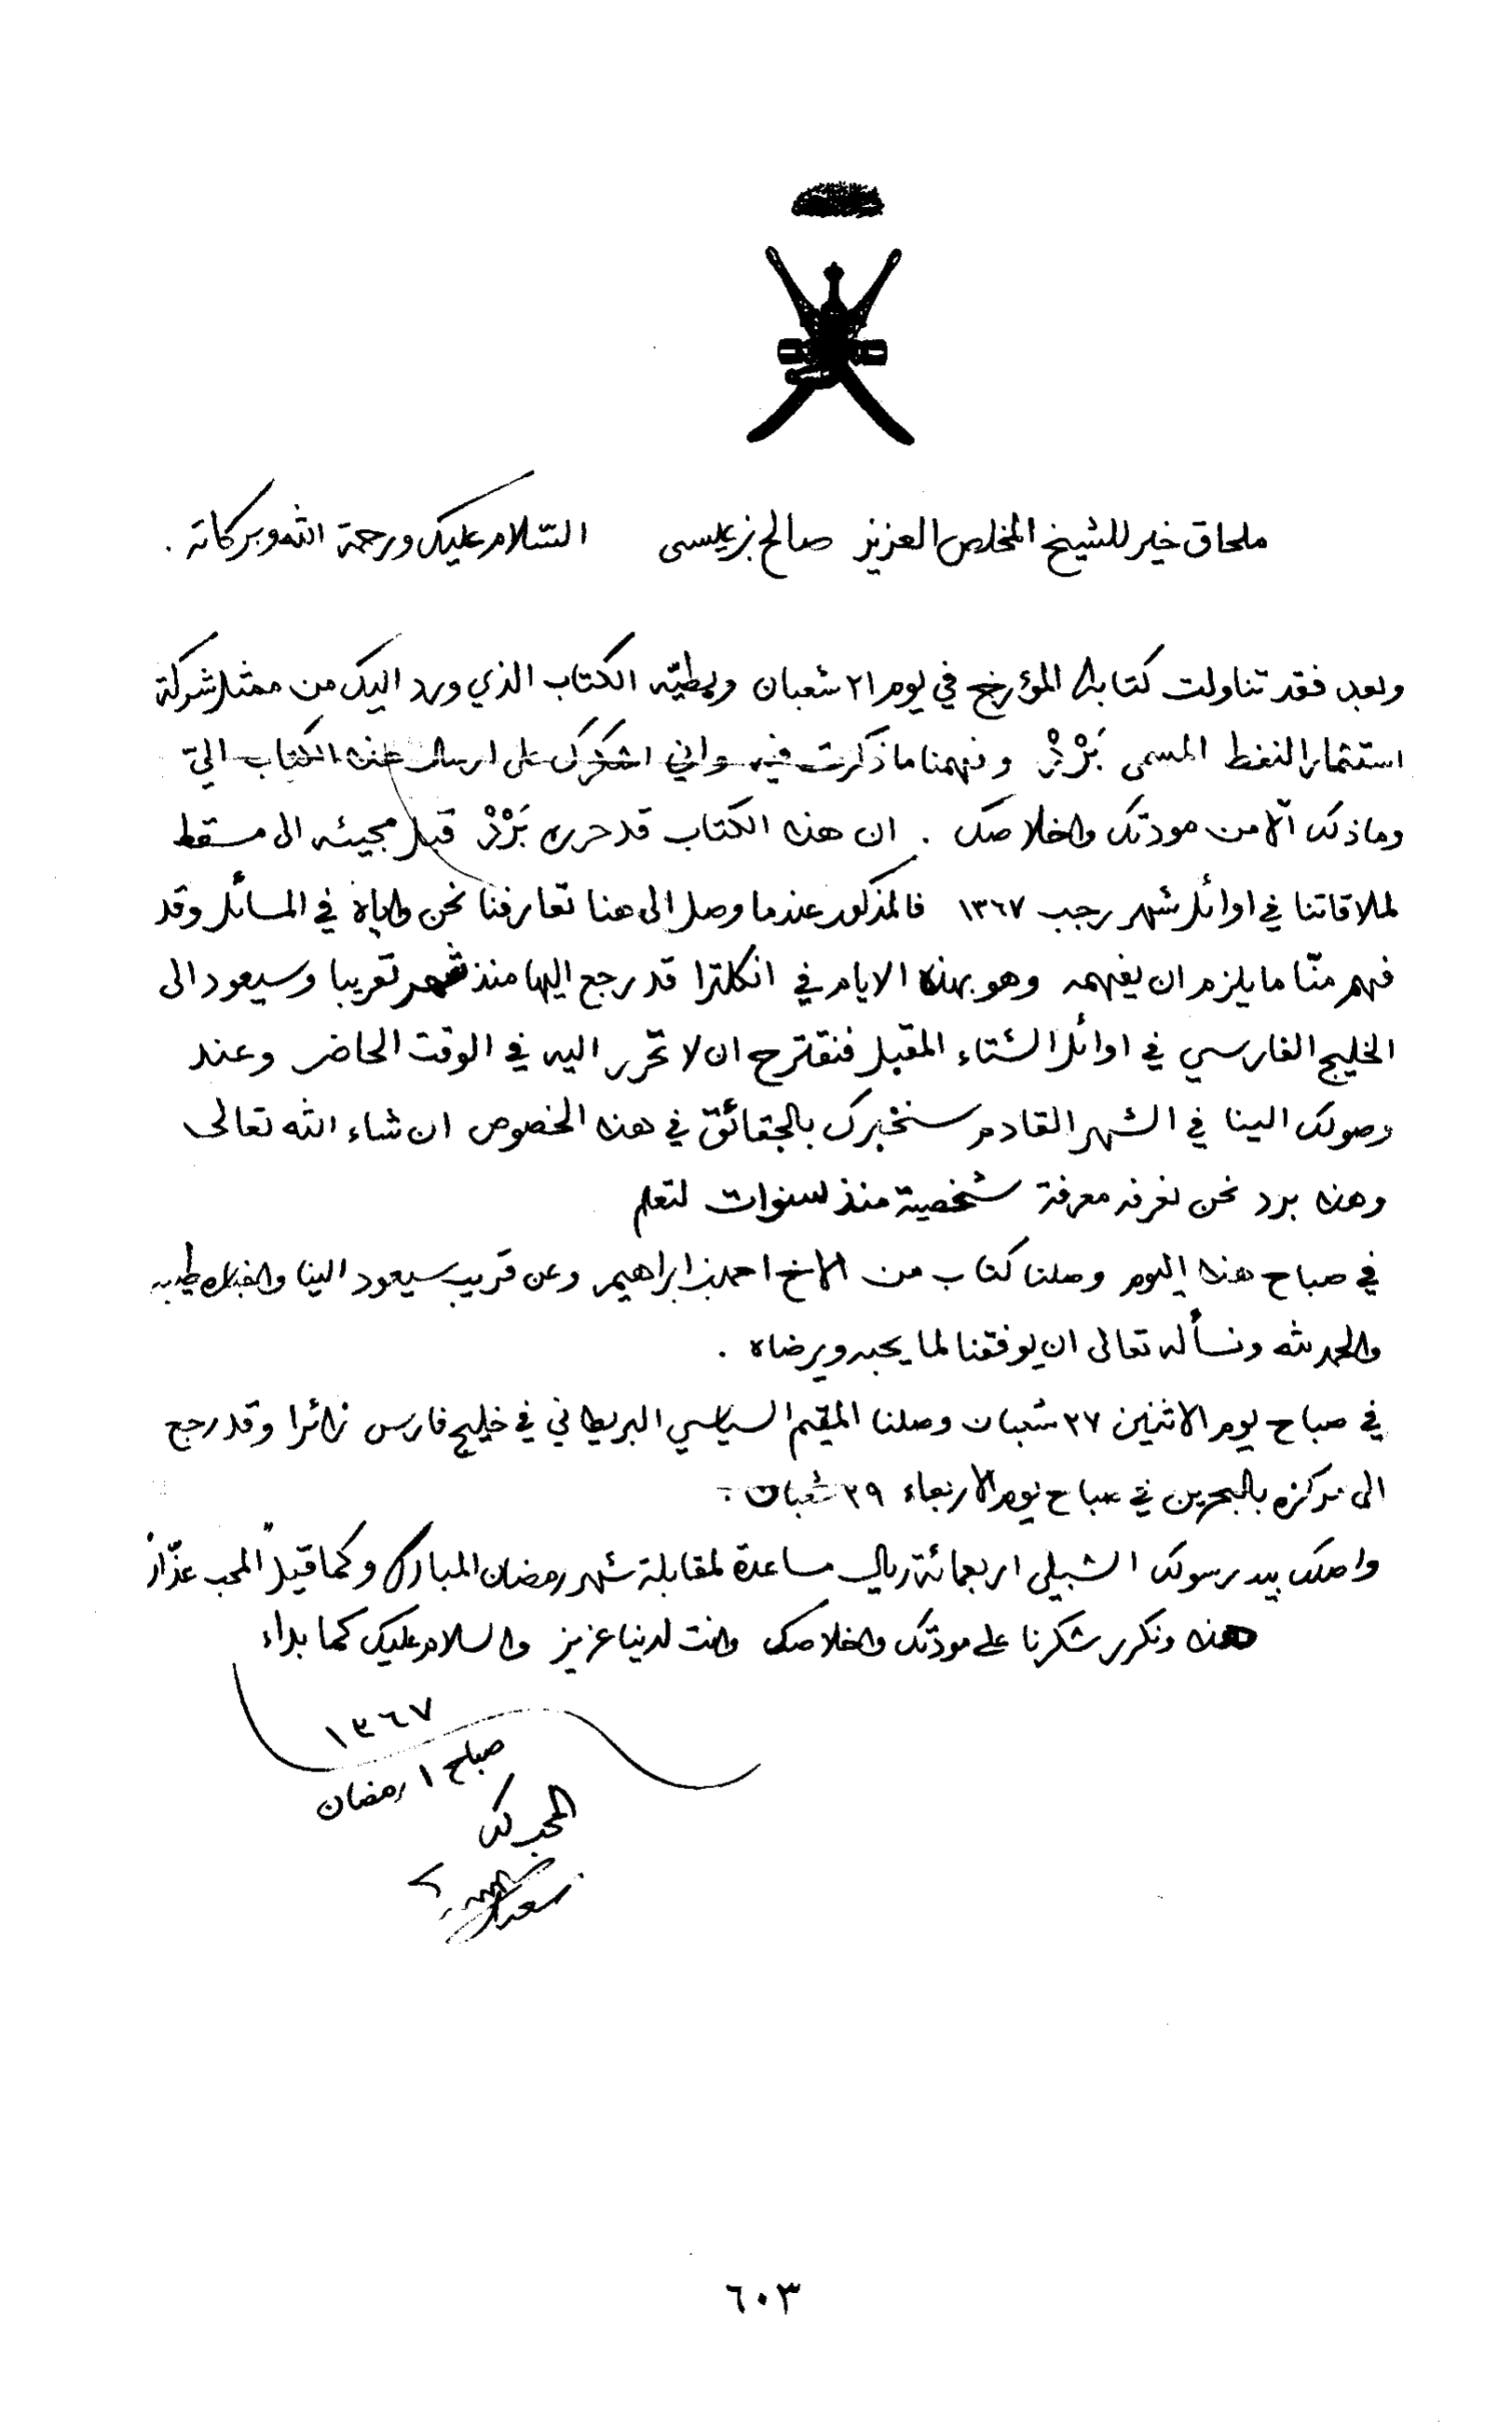 ملحاق خير للشيخ المخلص العزيز صالح بن عيسى السلام عليك ورحمة الله وبركاته .
وبعد فقد تناولت كتابك المؤرخ في يوم ٢١ شعبان وبطيّه الكتاب الذي ورد اليك من ممثل شركة
استثمار النفط المسمى بَرْدْ وفهمنا ما ذكرت فيه واني اشكرك على ارسال هذا الكتاب اليّ
وما ذلك الّا من مودتك واخلاصك . ان هذا الكتاب قد حرره بَرْدْ قبل مجيئه الى مسقط
لملاقاتنا في اوائل شهر رجب ١٣٦٧ فالمذكور عندما وصل الى هنا تعارفنا نحن واياه في المسائل وقد
فهم منّا ما يلزم ان يفهمه وهو بهذه الايام في انكلترا قد رجع اليها منذ شهر تقريبا وسيعود الى
الخليج الفارسي في اوائل الشتاء المقبل فنقترح ان لا تحرر اليه في الوقت الحاضر وعند
وصولك الينا في الشهر القادم سنخبرك بالحقائق في هذا الخصوص ان شاء الله تعالى
وهذا برد نحن نعرفه معرفة شخصية منذ سنوات لتعلم
في صباح هذا اليوم وصلنا كتاب من الاخ احمد بن ابراهيم وعن قريب سيعود الينا واخباره طيبه
والحمد لله ونسأله تعالى ان يوفقنا لما يحبه ويرضاه .
في صباح يوم الاثنين ٢٧ شعبان وصلنا المقيم السياسي البريطاني في خليج فارس زائرا وقد رجع
الى مركزه بالبحرين في صباح يوم الاربعاء ٢٩ شعبان .
واصلك بيد رسولك الشبلي اربعمائة ريال مساعدة لمقابلة شهر رمضان المبارك وكما قيل "المحب عذّار"
هذا ونكرر شكرنا على مودتك واخلاصك وانت لدينا عزيز والسلام عليك كما بداء
١٣٦٧
صباح ١ رمضان
المحب لك
سعيد
٦٠٣